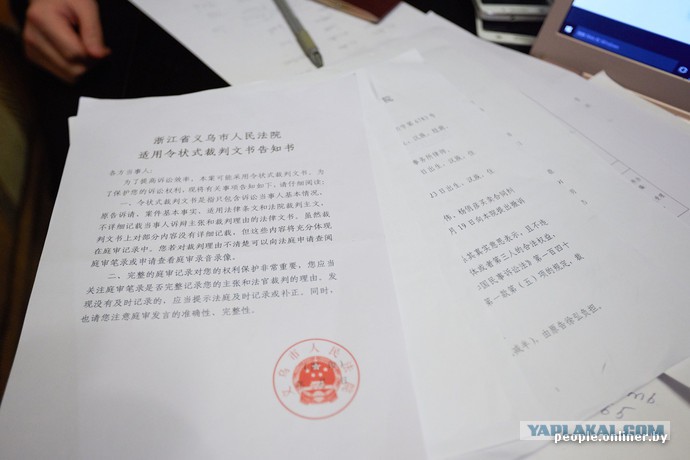 浙江省义乌市人民法院
适用令状式裁判文书告知书
各方当事人:
为了提高诉讼效率,本案可能采用令状式裁判文书。为
了保护您的诉讼权利,现将有关事项告知如下,请仔细阅读:
一、令状式裁判文书是指只包含诉讼当事人基本情况、
原告诉请、案件基本事实、适用法律条文和法院判决主文,
不详细记载当事人诉辩主张和裁判理由的法律文书。虽然裁
判文书上对部分内容没有详细记载,但这些内容将充分体现
在庭审记录中。您若对裁判理由不清楚可以向法庭申请查阅
庭审笔录或申请查看庭审录音录像。
二、完整的庭审记录对您的权利保护非常重要,您应当
关注庭审笔录是否完整记录您的主张和法官裁判的理由。发
现没有及时记录的,应当提示法庭及时记录或补正。同时,
也请您注意庭审发言的准确性、完整性。
义乌市人民法院
院
日出生,汉族,住
月 19 日向本院提出撤诉
真实意思表示,且不违
体或者第三人的合法权益,
国民事诉讼法》第一百四十
第一款第(五)项的规定,裁
减半),由原告徐
负担。
65
YAPLAKAL.COM
people.onliner.by